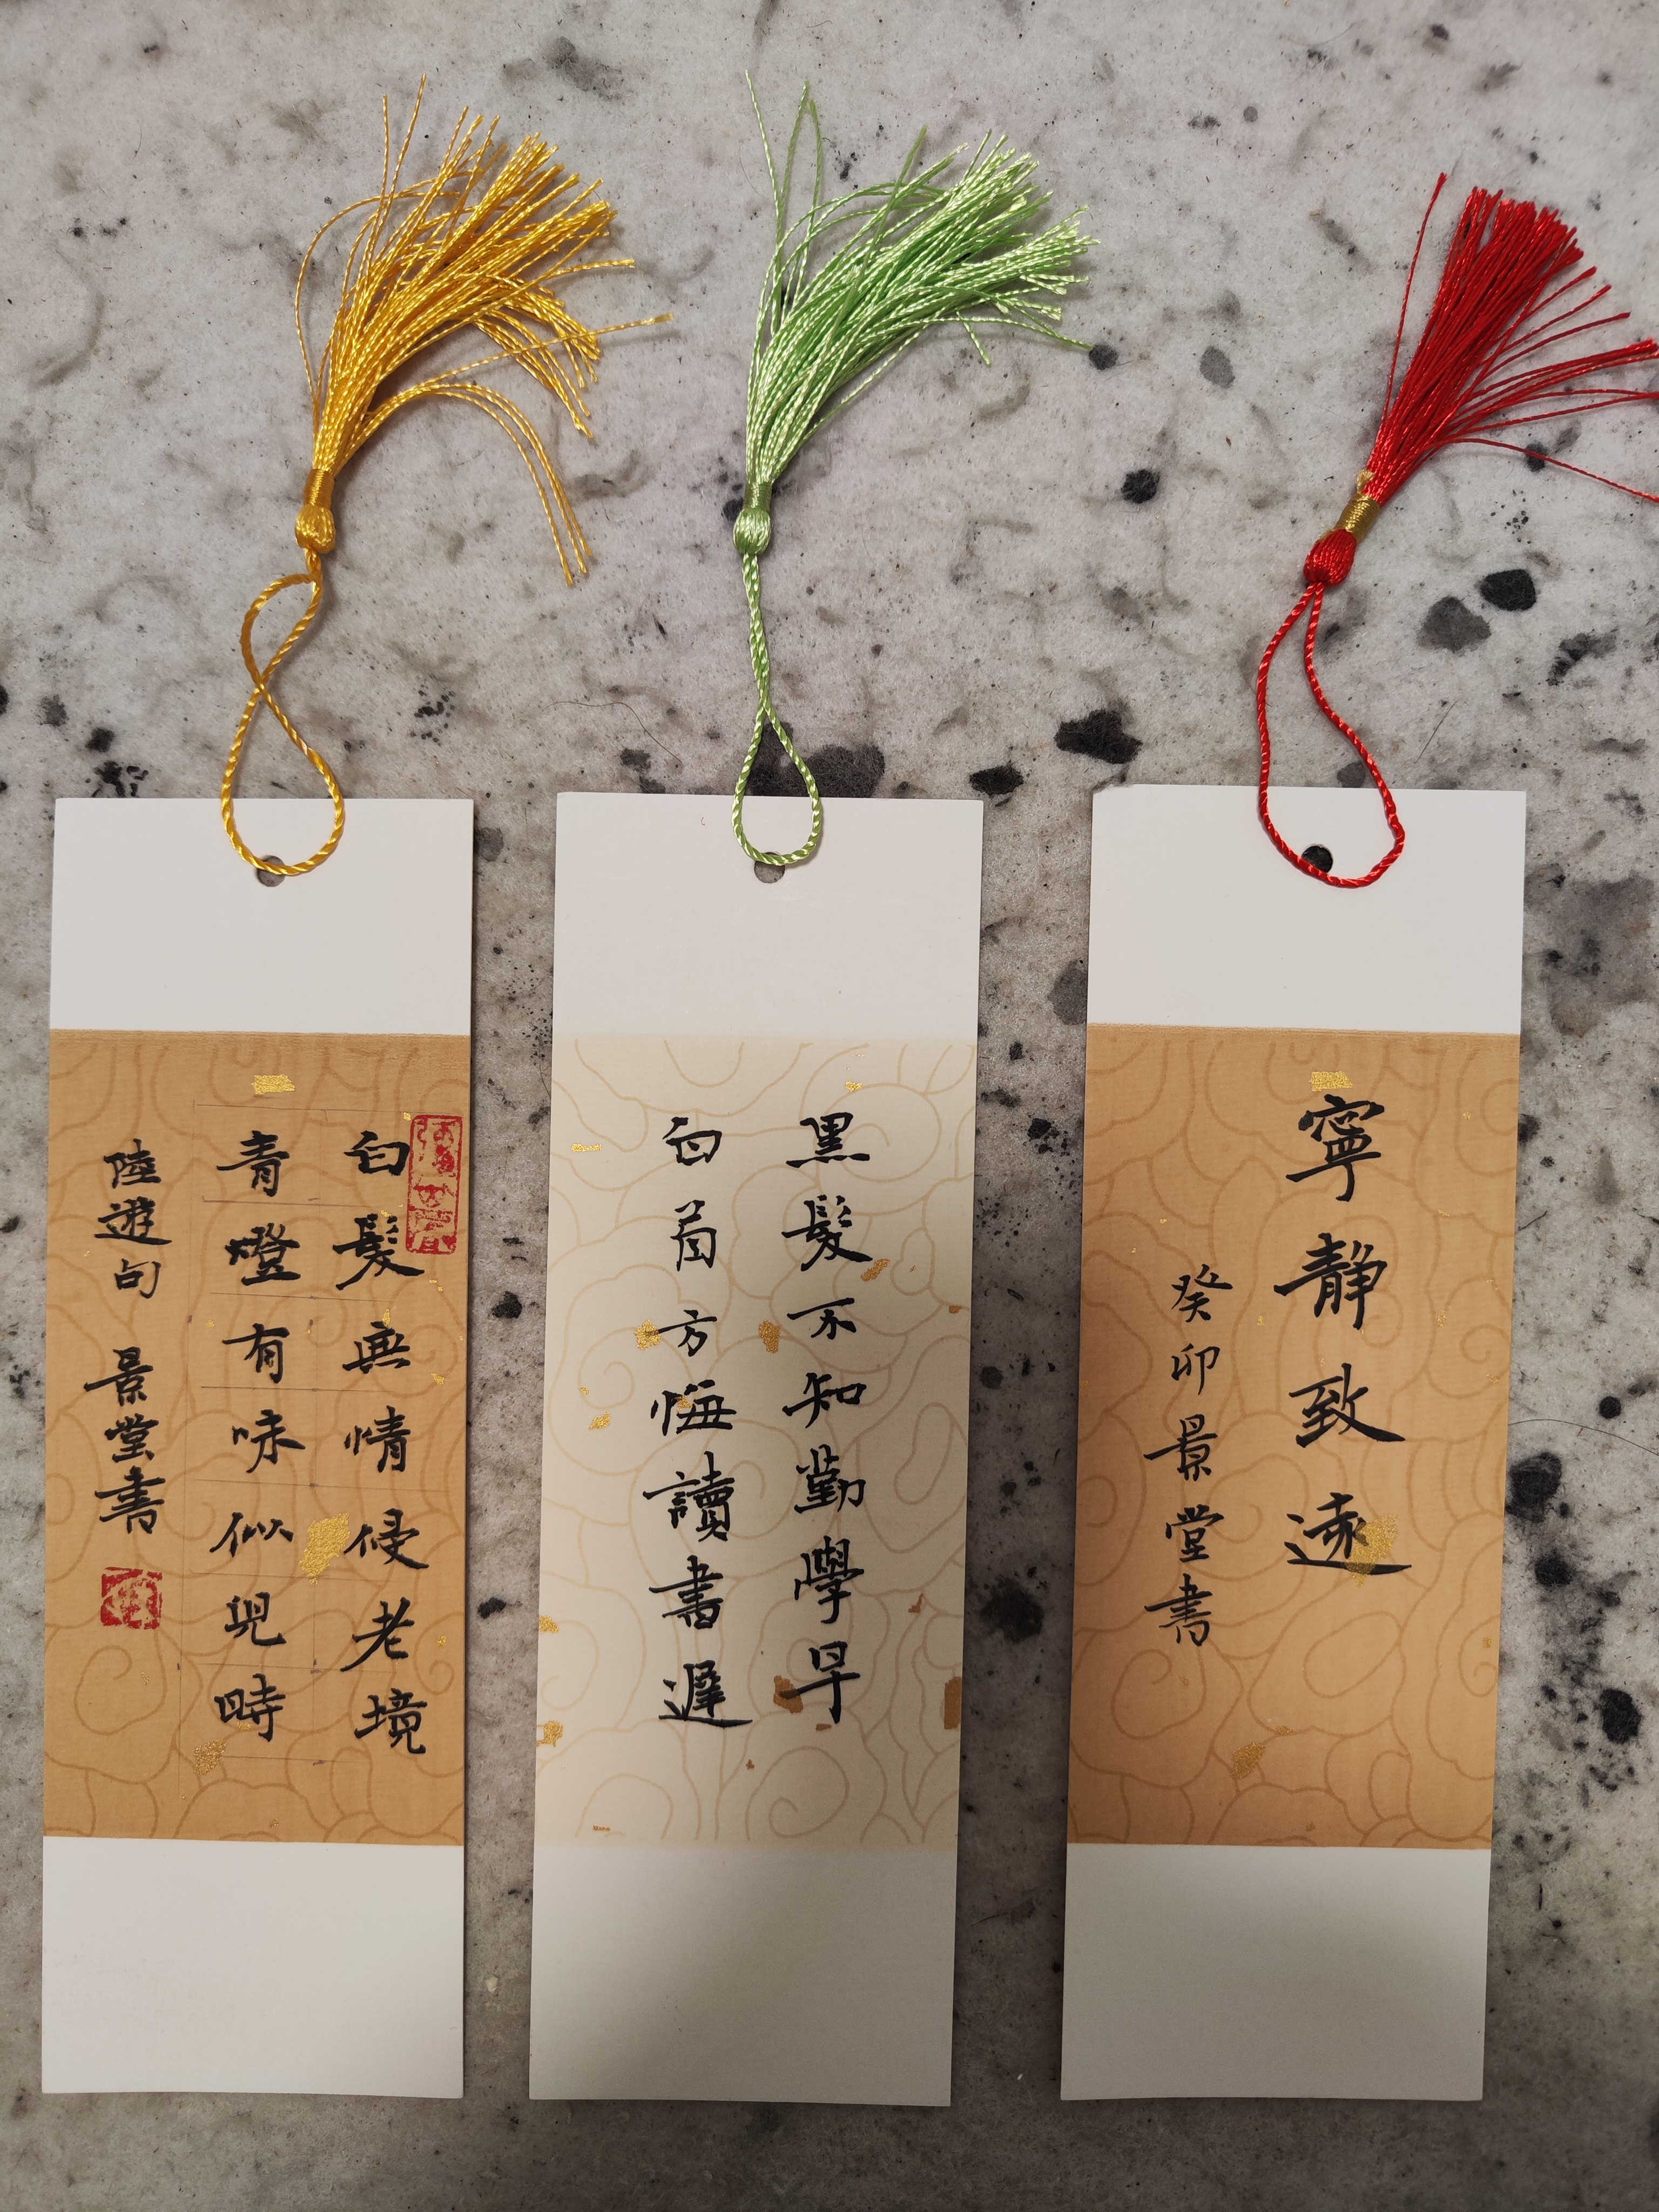 白髮無情侵老境
青燈有味似兒時
陸遊句 景堂書
黑髮不知勤學早
白首方悔讀書遲
寧靜致遠
癸卯景堂書